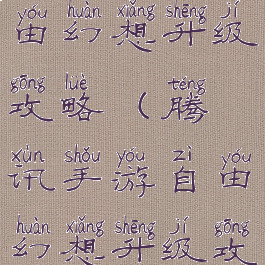 yóu huàn xiǎng shēng jí
由幻想升级
gōng lüè téng
攻略(腾
xùn shǒu yóu zì yóu
讯手游自由
huàn xiǎng shēng jí gōng
幻想升级攻